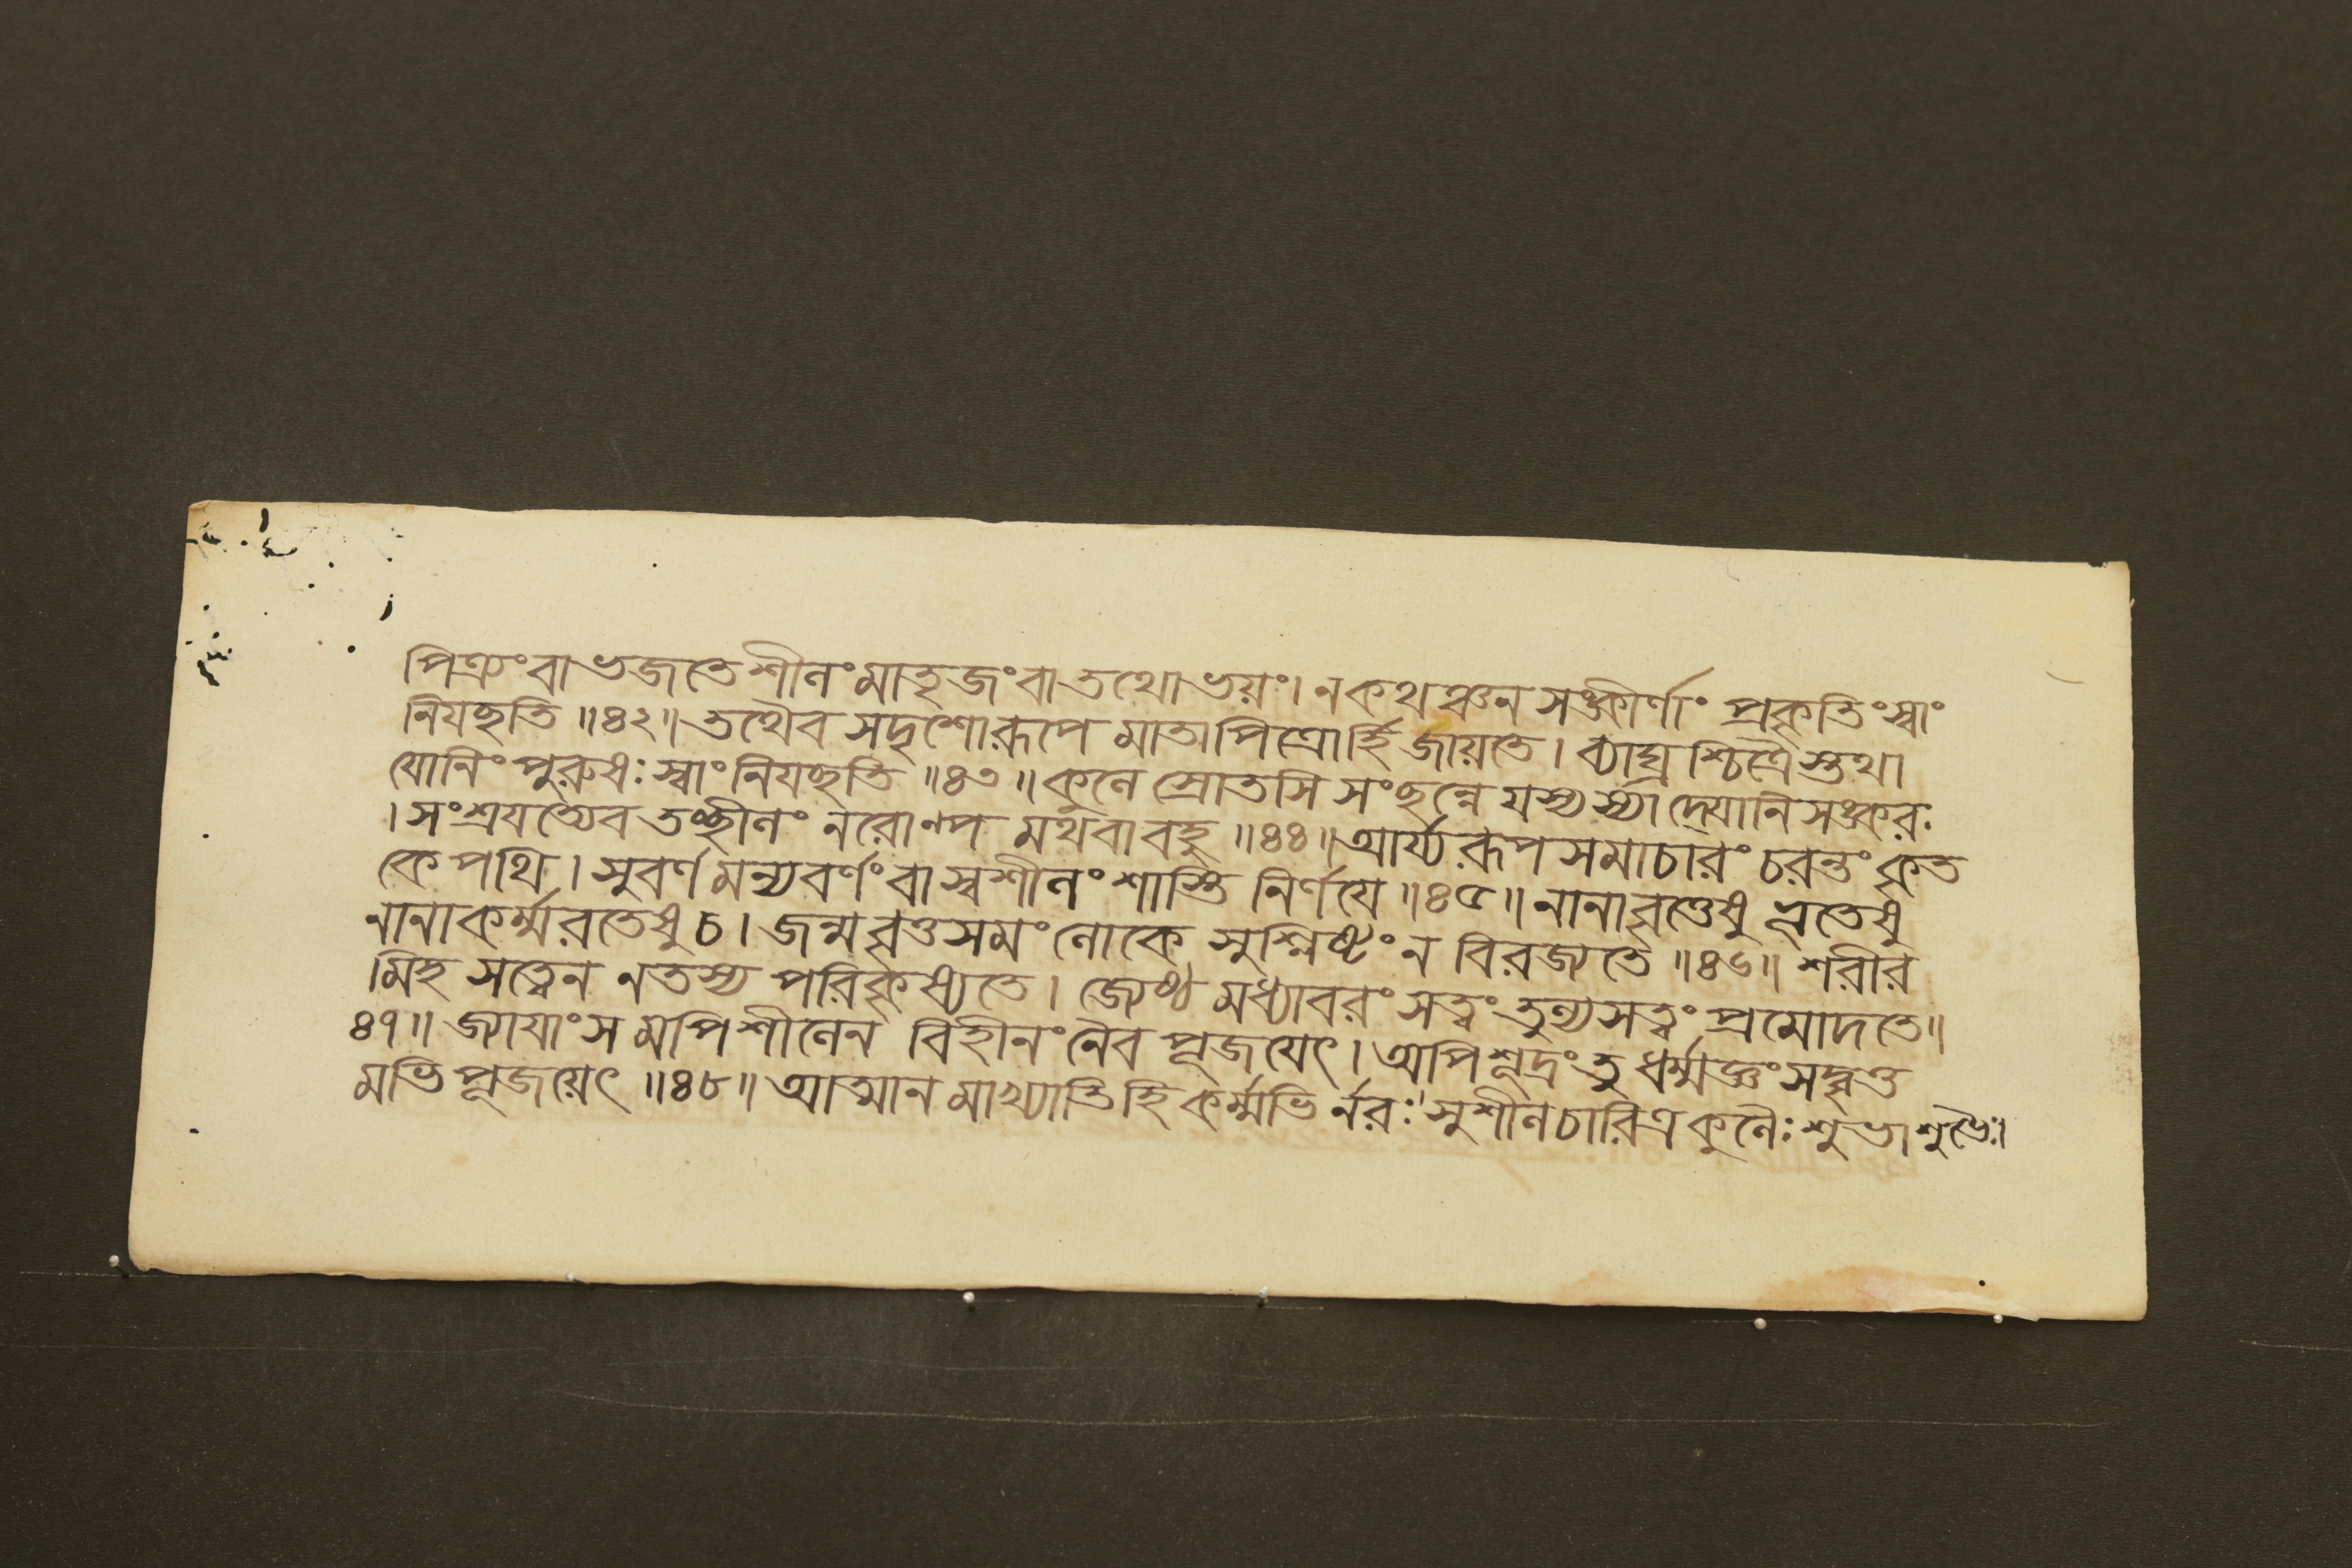 পিত্র্যং বা ভজতে শীলং মাতৃজং বা তথোভয়ং। ন কথঞ্চন সঙ্কীর্ণাং প্রকৃতিং স্বাং
নিযচ্ছতি ॥৪২॥ তথৈব সদৃশো রূপে মাতাপিত্রোর্হি জায়তে। ব্যাঘ্রশ্চিত্রৈস্তথা
যোনিং পুরুষঃ স্বাং নিযচ্ছতি ॥৪৩॥ কুলে স্রোতসি সংছন্নে যস্য স্যাদ্যোনিসঙ্করঃ
। সংশ্রযত্যেব তচ্ছীলং নরোণ্প মথবা বহু ॥৪৪॥ আর্য্যরূপসমাচারং চরন্তং কৃত
কে পথি। সুবর্ণমন্যবর্ণং বা স্বশীলং শাস্তি নির্ণযে ॥৪৫॥ নানাবৃত্তেষু ভূতেষু
নানাকর্ম্মরতেষু চ। জন্মবৃত্তসমং লোকে সুশ্লিষ্টং ন বিরজ্যতে ॥৪৬॥ শরীর
মিহ সত্ত্বেন ন তস্য পরিকৃষ্যতে। জ্যেষ্ঠমধ্যাবরং সত্ত্বং তুল্যসত্ত্বং প্রমোদতে॥
৪৭॥ জ্যাযাংসমপি শীলেন বিহীনং নৈব পূজযেৎ। অপি শূদ্রং তু ধর্ম্মজ্ঞং সদ্বৃত্ত
মভিপূজয়েৎ ॥৪৮॥ আত্মানমাখ্যাতি হি কর্ম্মভির্নরঃ সুশীলচারিত্রকুলৈঃ শুভাশুভৈঃ।